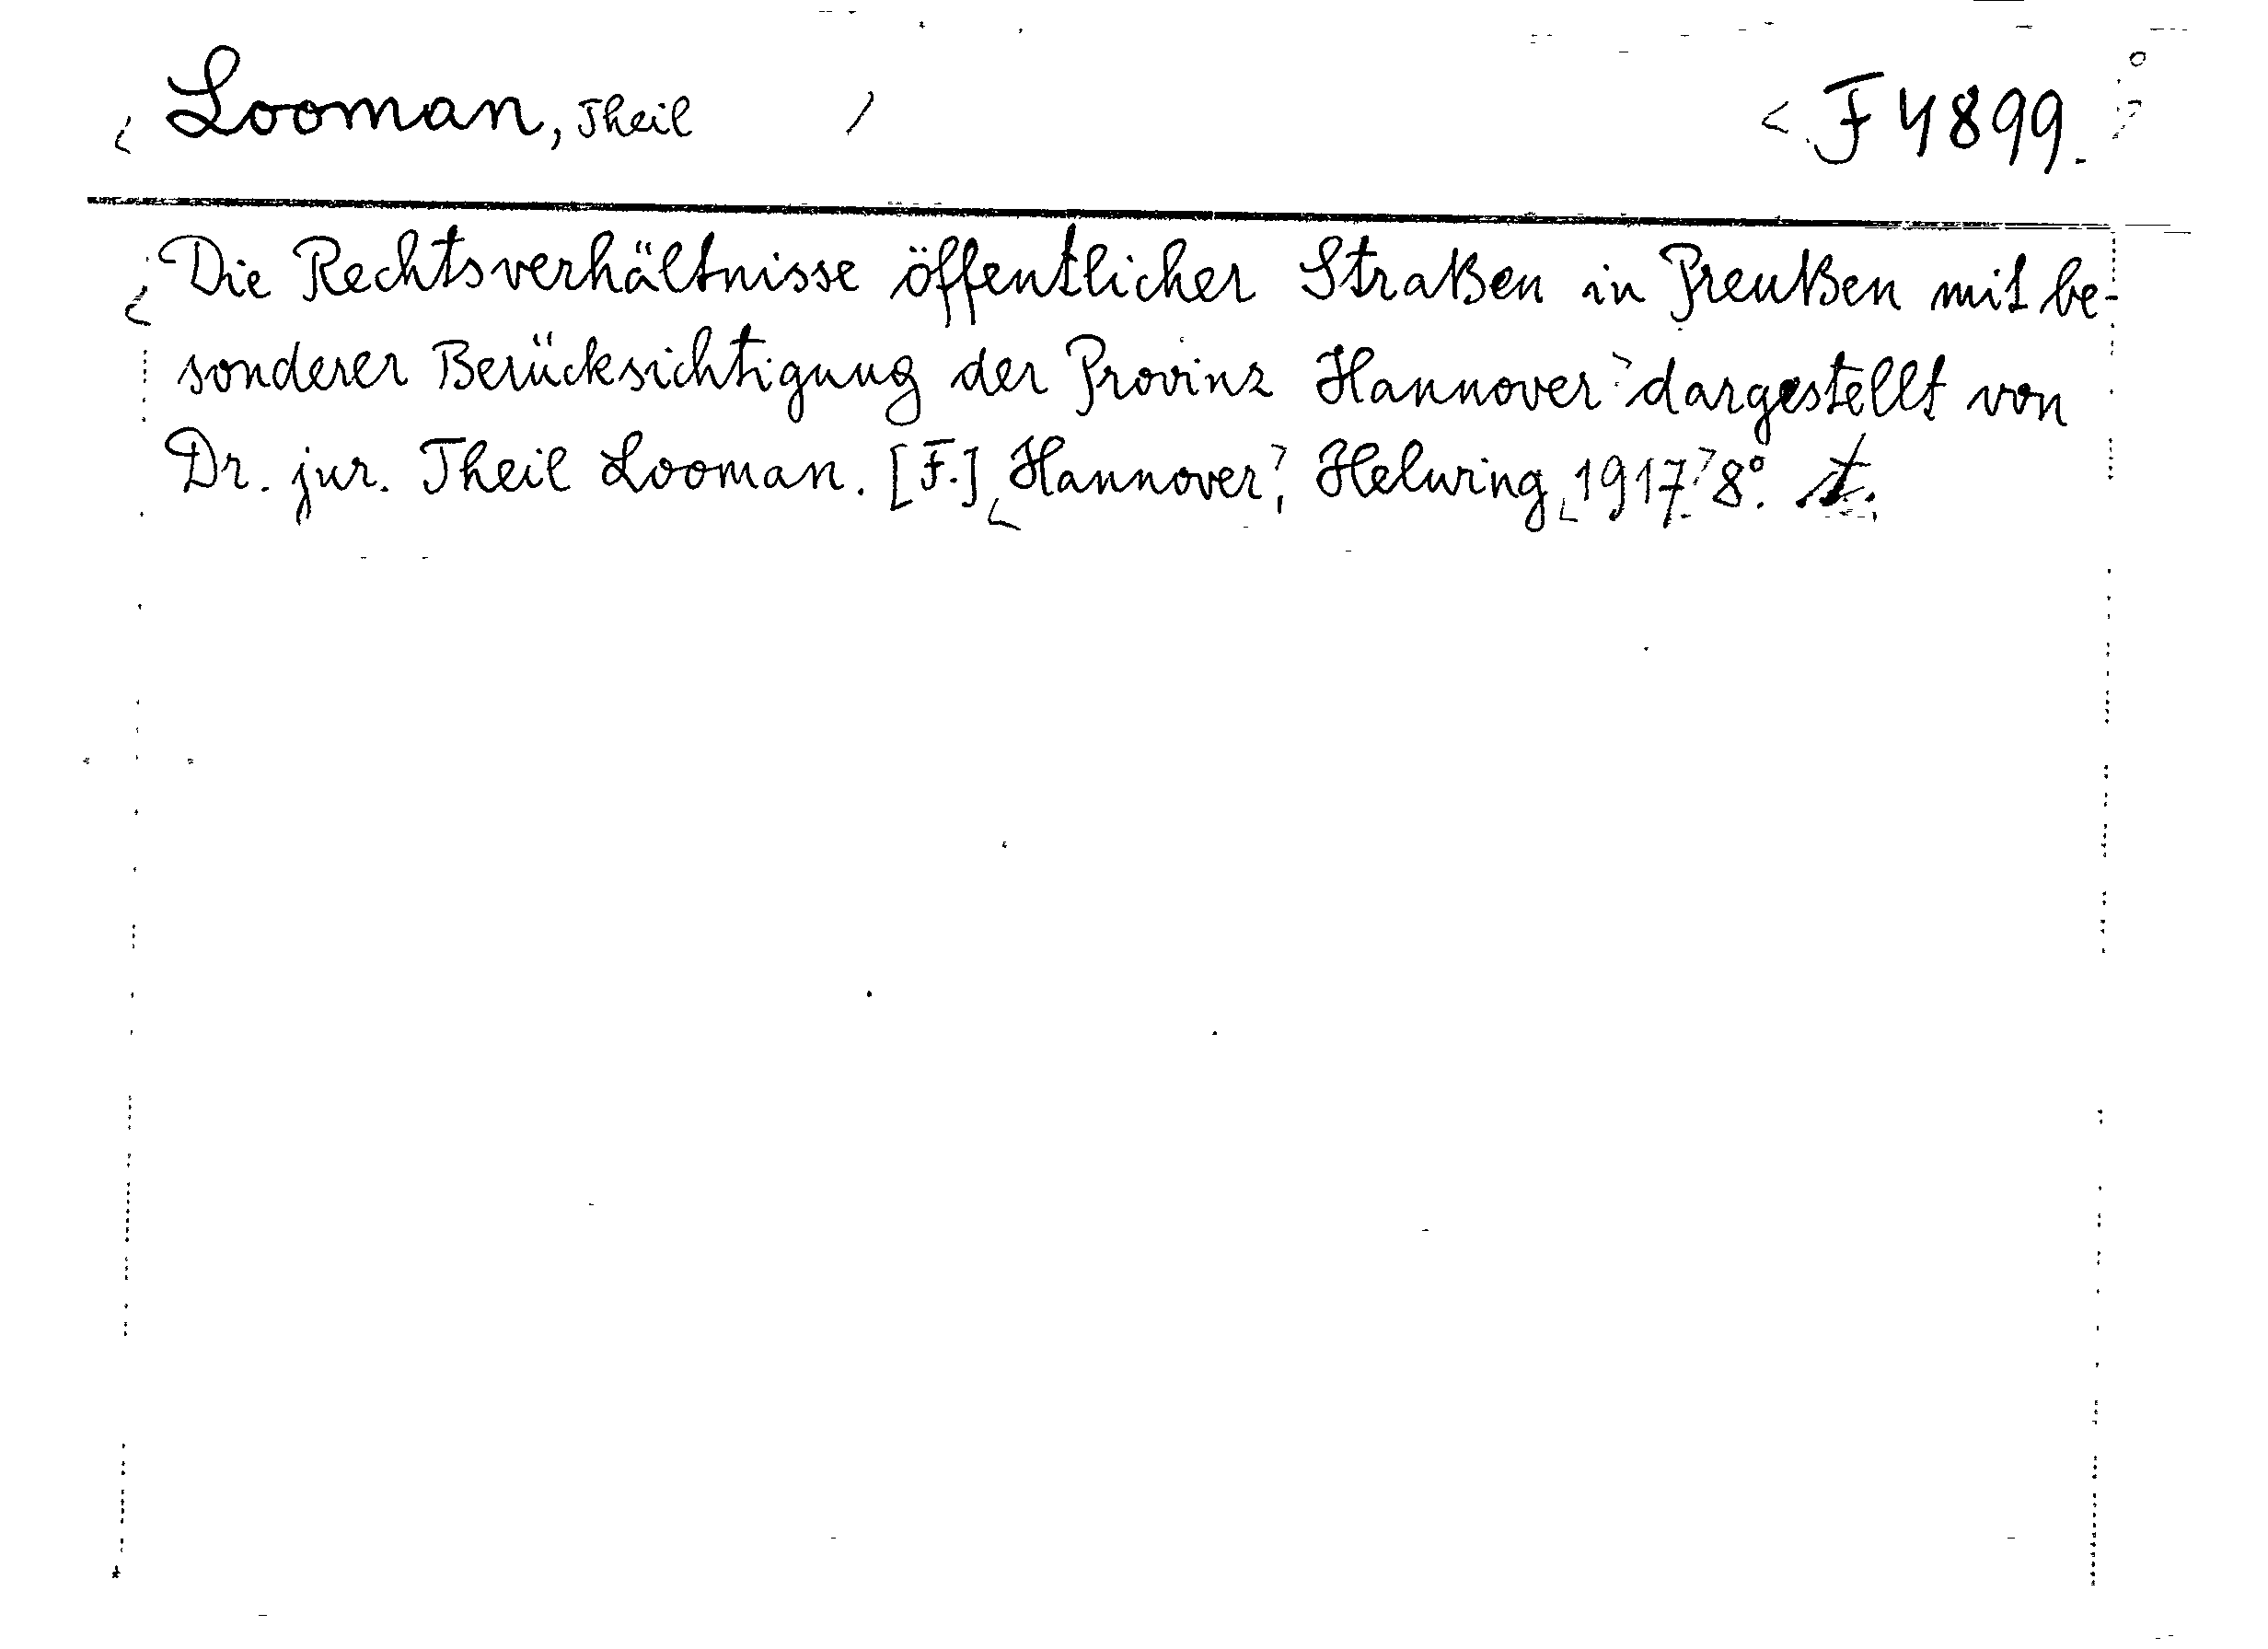 Looman, Theil F 4899.
Die Rechtsverhältnisse öffentlicher Straßen in Preußen mit be-
sonderer Berücksichtigung der Provinz Hannover dargestellt von
Dr. jur. Theil Looman. [F.] Hannover, Helwing 1917 8°.